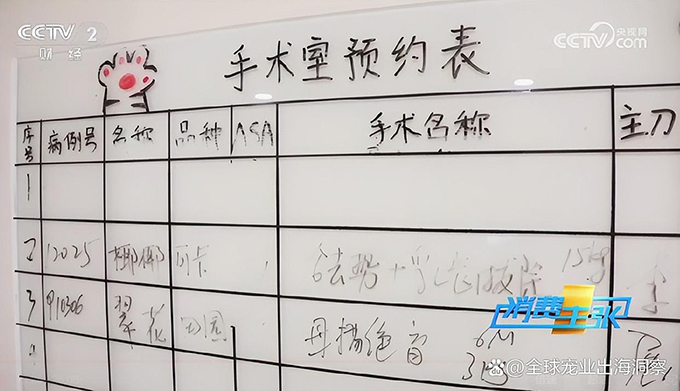 CCTV 2
财经
央视网
CCTV.com
手术室预约表
序号 病例号 名称 品种 ASA 手术名称 主刀
1
2 12025 椰椰 可卡 去势+乳牙拔除 15kg
3 910306 翠花 田园 母猫绝育 6M
消费主张
@全球宠业出海洞察